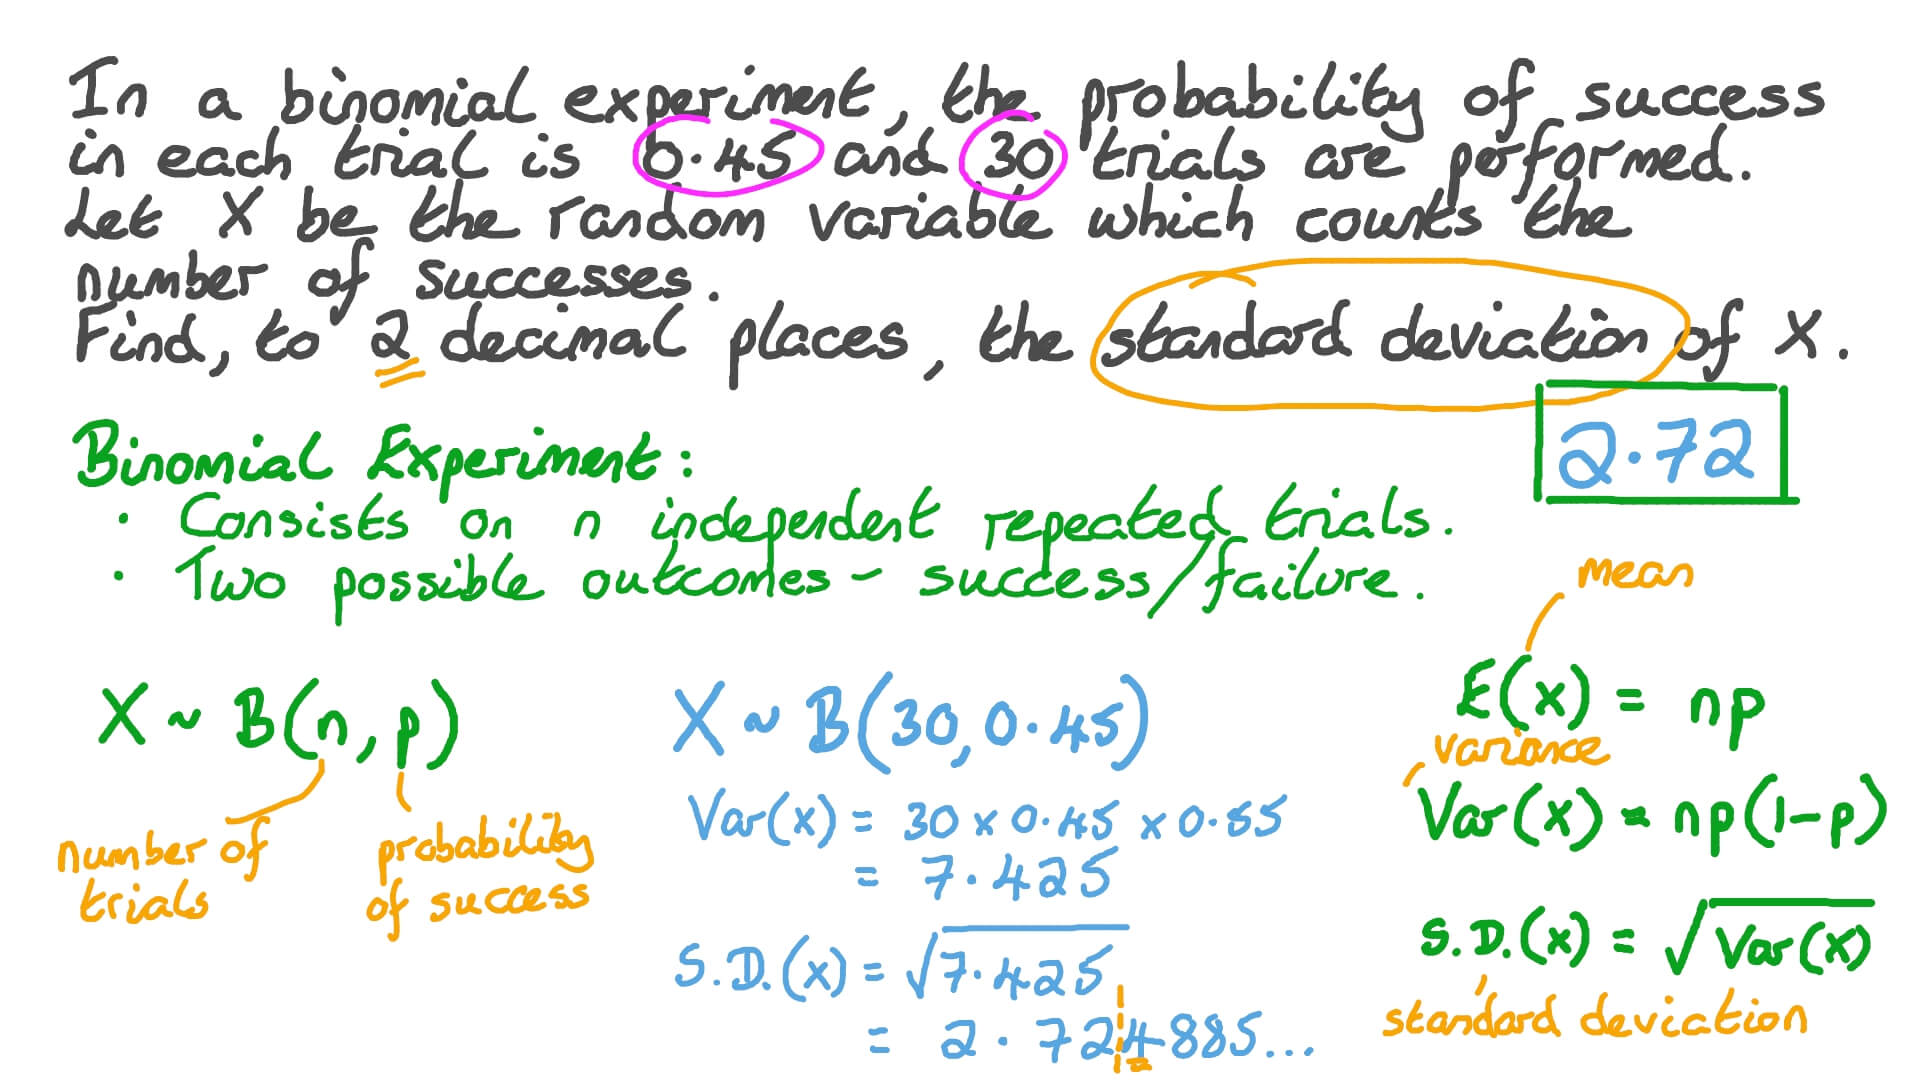 In a binomial experiment, the probability of success
in each trial is 0.45 and 30 trials are performed.
Let X be the random variable which counts the
number of successes.
Find, to 2 decimal places, the standard deviation of X.
2.72
Binomial Experiment:
· Consists on n independent repeated trials.
· Two possible outcomes - success/failure.
X ~ B(n, p)
number of
trials
probability
of success
X ~ B(30, 0.45)
Var(x) = 30 x 0.45 x 0.55
= 7.425
S.D.(x) = √7.425
= 2.724885...
mean
E(x) = np
variance
Var(x) = np(1-p)
S.D.(x) = √Var(x)
standard deviation